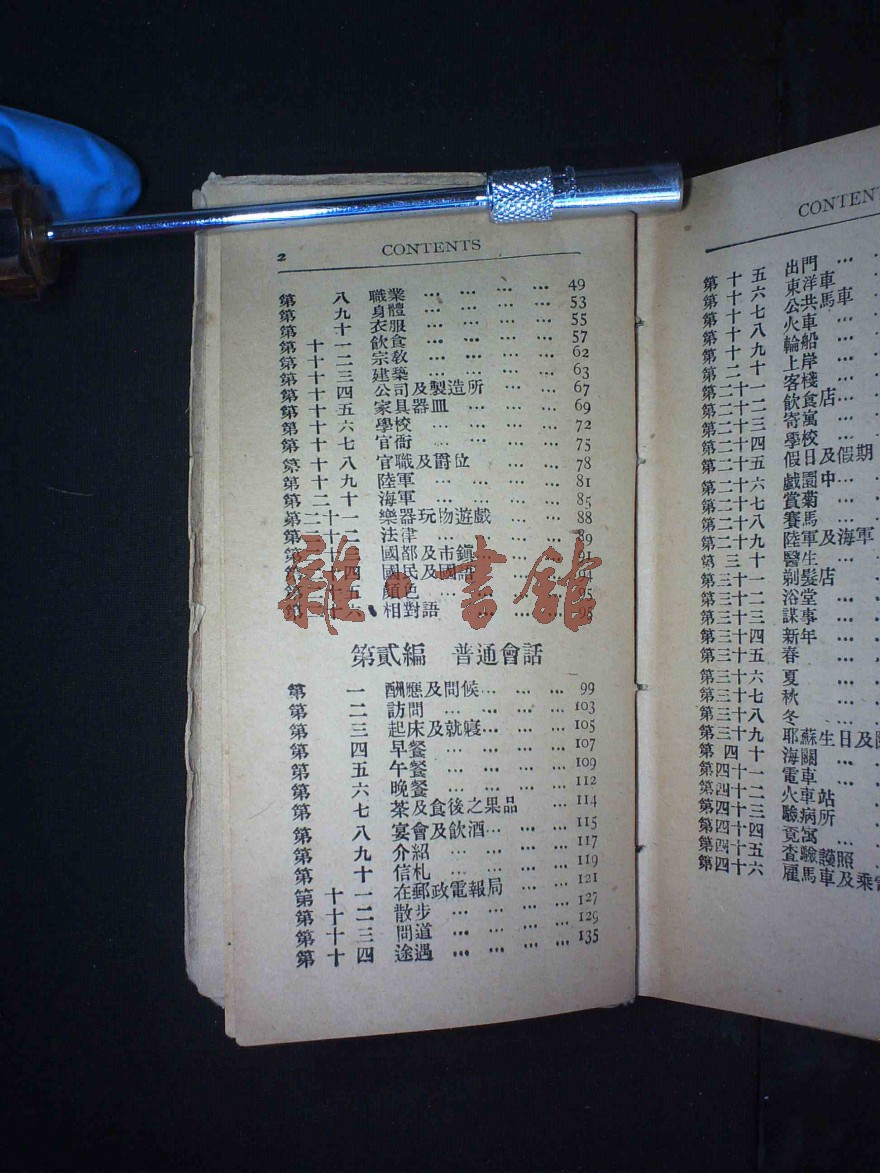 2 CONTENTS
第 八 職業 … … … … 49
第 九 身體 … … … … 53
第 十 衣服 … … … … 55
第 十 一 飲食 … … … … 57
第 十 二 宗敎 … … … … 62
第 十 三 建築 … … … … 63
第 十 四 公司及製造所 … … 67
第 十 五 家具器皿 … … … 69
第 十 六 學校 … … … … 72
第 十 七 官衙 … … … … 75
第 十 八 官職及爵位 … … 78
第 十 九 陸軍 … … … … 81
第 二 十 海軍 … … … … 85
第二十一 樂器玩物遊戲 … … 88
第二十二 法律 … … … … 89
第二十三 國都及市鎮 … … 91
第二十四 國民及國語 … … 94
第二十五 顏色 … … … … 95
第二十六 相對語 … … … 95
雜書館
第貳編 普通會話
第 一 酬應及問候… … … 99
第 二 訪問 … … … … 103
第 三 起床及就寢… … … 105
第 四 早餐 … … … … 107
第 五 午餐 … … … … 109
第 六 晚餐 … … … … 112
第 七 茶及食後之果品 … 114
第 八 宴會及飲酒… … … 115
第 九 介紹 … … … … 117
第 十 信札 … … … … 119
第 十 一 在郵政電報局 … … 121
第 十 二 散步 … … … … 127
第 十 三 問道 … … … … 129
第 十 四 途遇 … … … … 135
CONTEN
第 十 五 出門 …
第 十 六 東洋車 …
第 十 七 公共馬車 …
第 十 八 火車 …
第 十 九 輪船 …
第 二 十 上岸 …
第二十一 客棧 …
第二十二 飲食店…
第二十三 寄寓 …
第二十四 學校 …
第二十五 假日及假期
第二十六 戲園中 …
第二十七 賞菊 …
第二十八 賽馬 …
第二十九 陸軍及海軍
第 三 十 醫生 …
第三十一 剃髮店 …
第三十二 浴堂 …
第三十三 謀事 …
第三十四 新年 …
第三十五 春 …
第三十六 夏 …
第三十七 秋 …
第三十八 冬 …
第三十九 耶蘇生日及
第 四 十 海關 …
第四十一 電車 …
第四十二 火車站 …
第四十三 驗病所 …
第四十四 覓寓 …
第四十五 查驗護照 …
第四十六 雇馬車及乘